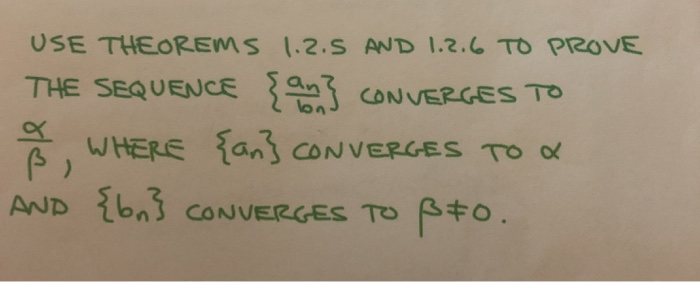 USE THEOREMS 1.2.5 AND 1.2.6 TO PROVE
THE SEQUENCE {an/bn} CONVERGES TO
α/β, WHERE {an} CONVERGES TO α
AND {bn} CONVERGES TO β≠0.